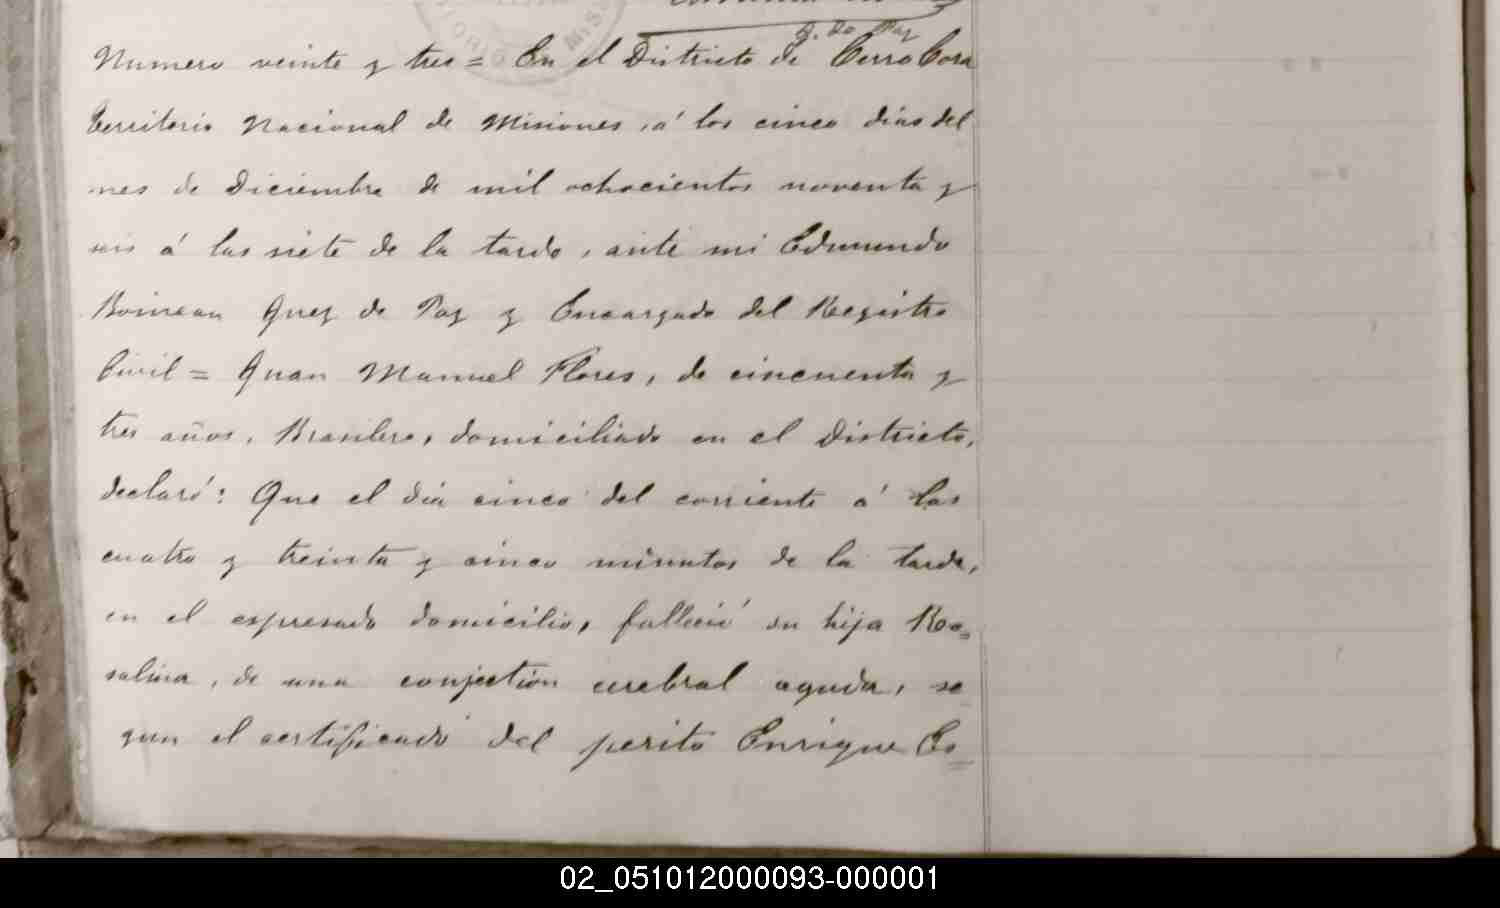 J. de Paz
Numero veinte y tres = En el Districto de Cerro Cora
Territorio Nacional de Misiones, á los cinco dias del
mes de Diciembre de mil ochocientos noventa y
seis á las siete de la tarde, ante mi Edmundo
Boineau Juez de Paz y Encargado del Registro
Civil = Juan Manuel Flores, de cincuenta y
tres años, Brasilero, domiciliado en el Districto,
declaró: Que el dia cinco del corriente á las
cuatro y treinta y cinco minutos de la tarde,
en el espresado domicilio, falleció su hija Ro=
salina, de una conjection cerebral aguda, se
gun el certificado del perito Enrique Es=
02_051012000093-000001